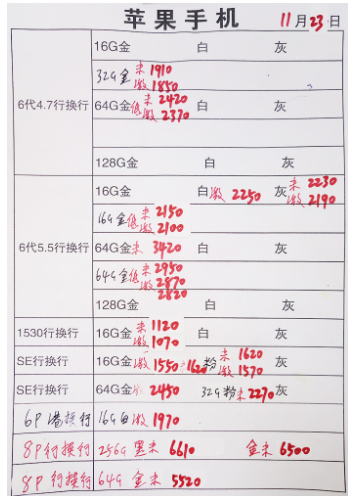 苹果手机 11月23日
16G金 白 灰
32G金 未 1910
激 1850
6代4.7行换行 64G金低 未 2420 白 灰
激 2370
128G金 白 灰
16G金 白激 2250 灰 未 2230
激 2190
16G金低 未 2150
激 2100
6代5.5行换行 64G金未 3420 白 灰
64G金低 未 2950
激 2870
2820
128G金 白 灰
1530行换行 16G金 未 1120 白 灰
激 1070
SE行换行 16G金激 1550 1620 粉 未 1620 灰
激 1570
SE行换行 64G金 2450 32G粉未 2270 灰
6P 港换行 16G白激 1970
8P行换行 256G 黑未 6610 金未 6500
8P行换行 64G 金未 5520